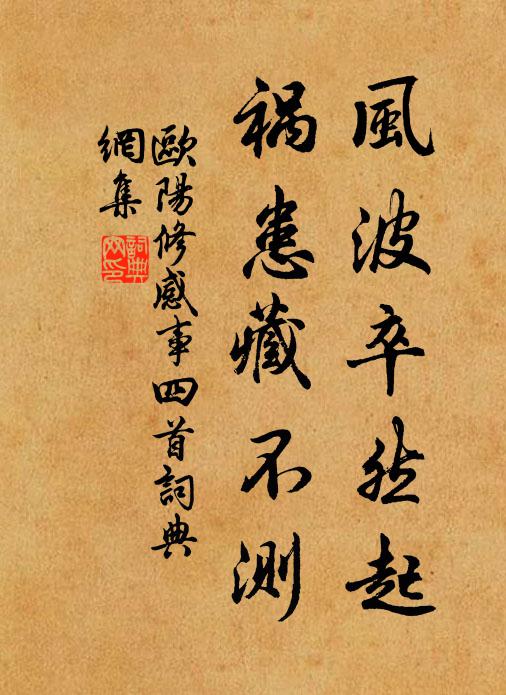 風波卒然起
禍患藏不測
歐陽修感事四首詞典
網集
詞典
网印